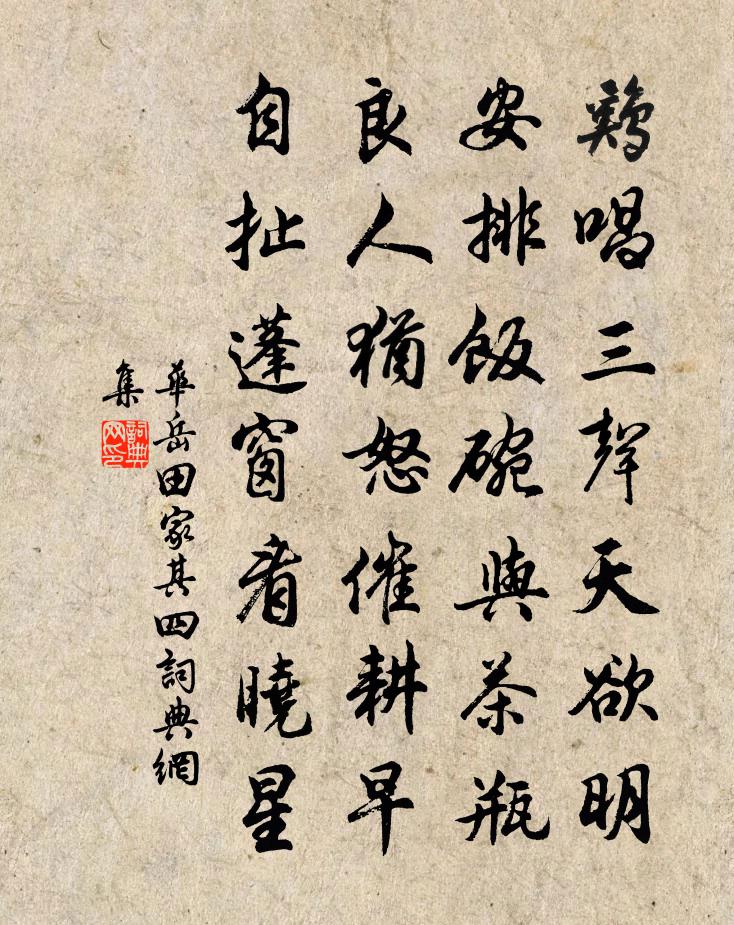 鷄唱三聲天欲明
安排飯碗與茶瓶
良人猶怒催耕早
自扯蓬窗看曉星
華岳田家其四詞典網
集
詞典
网印